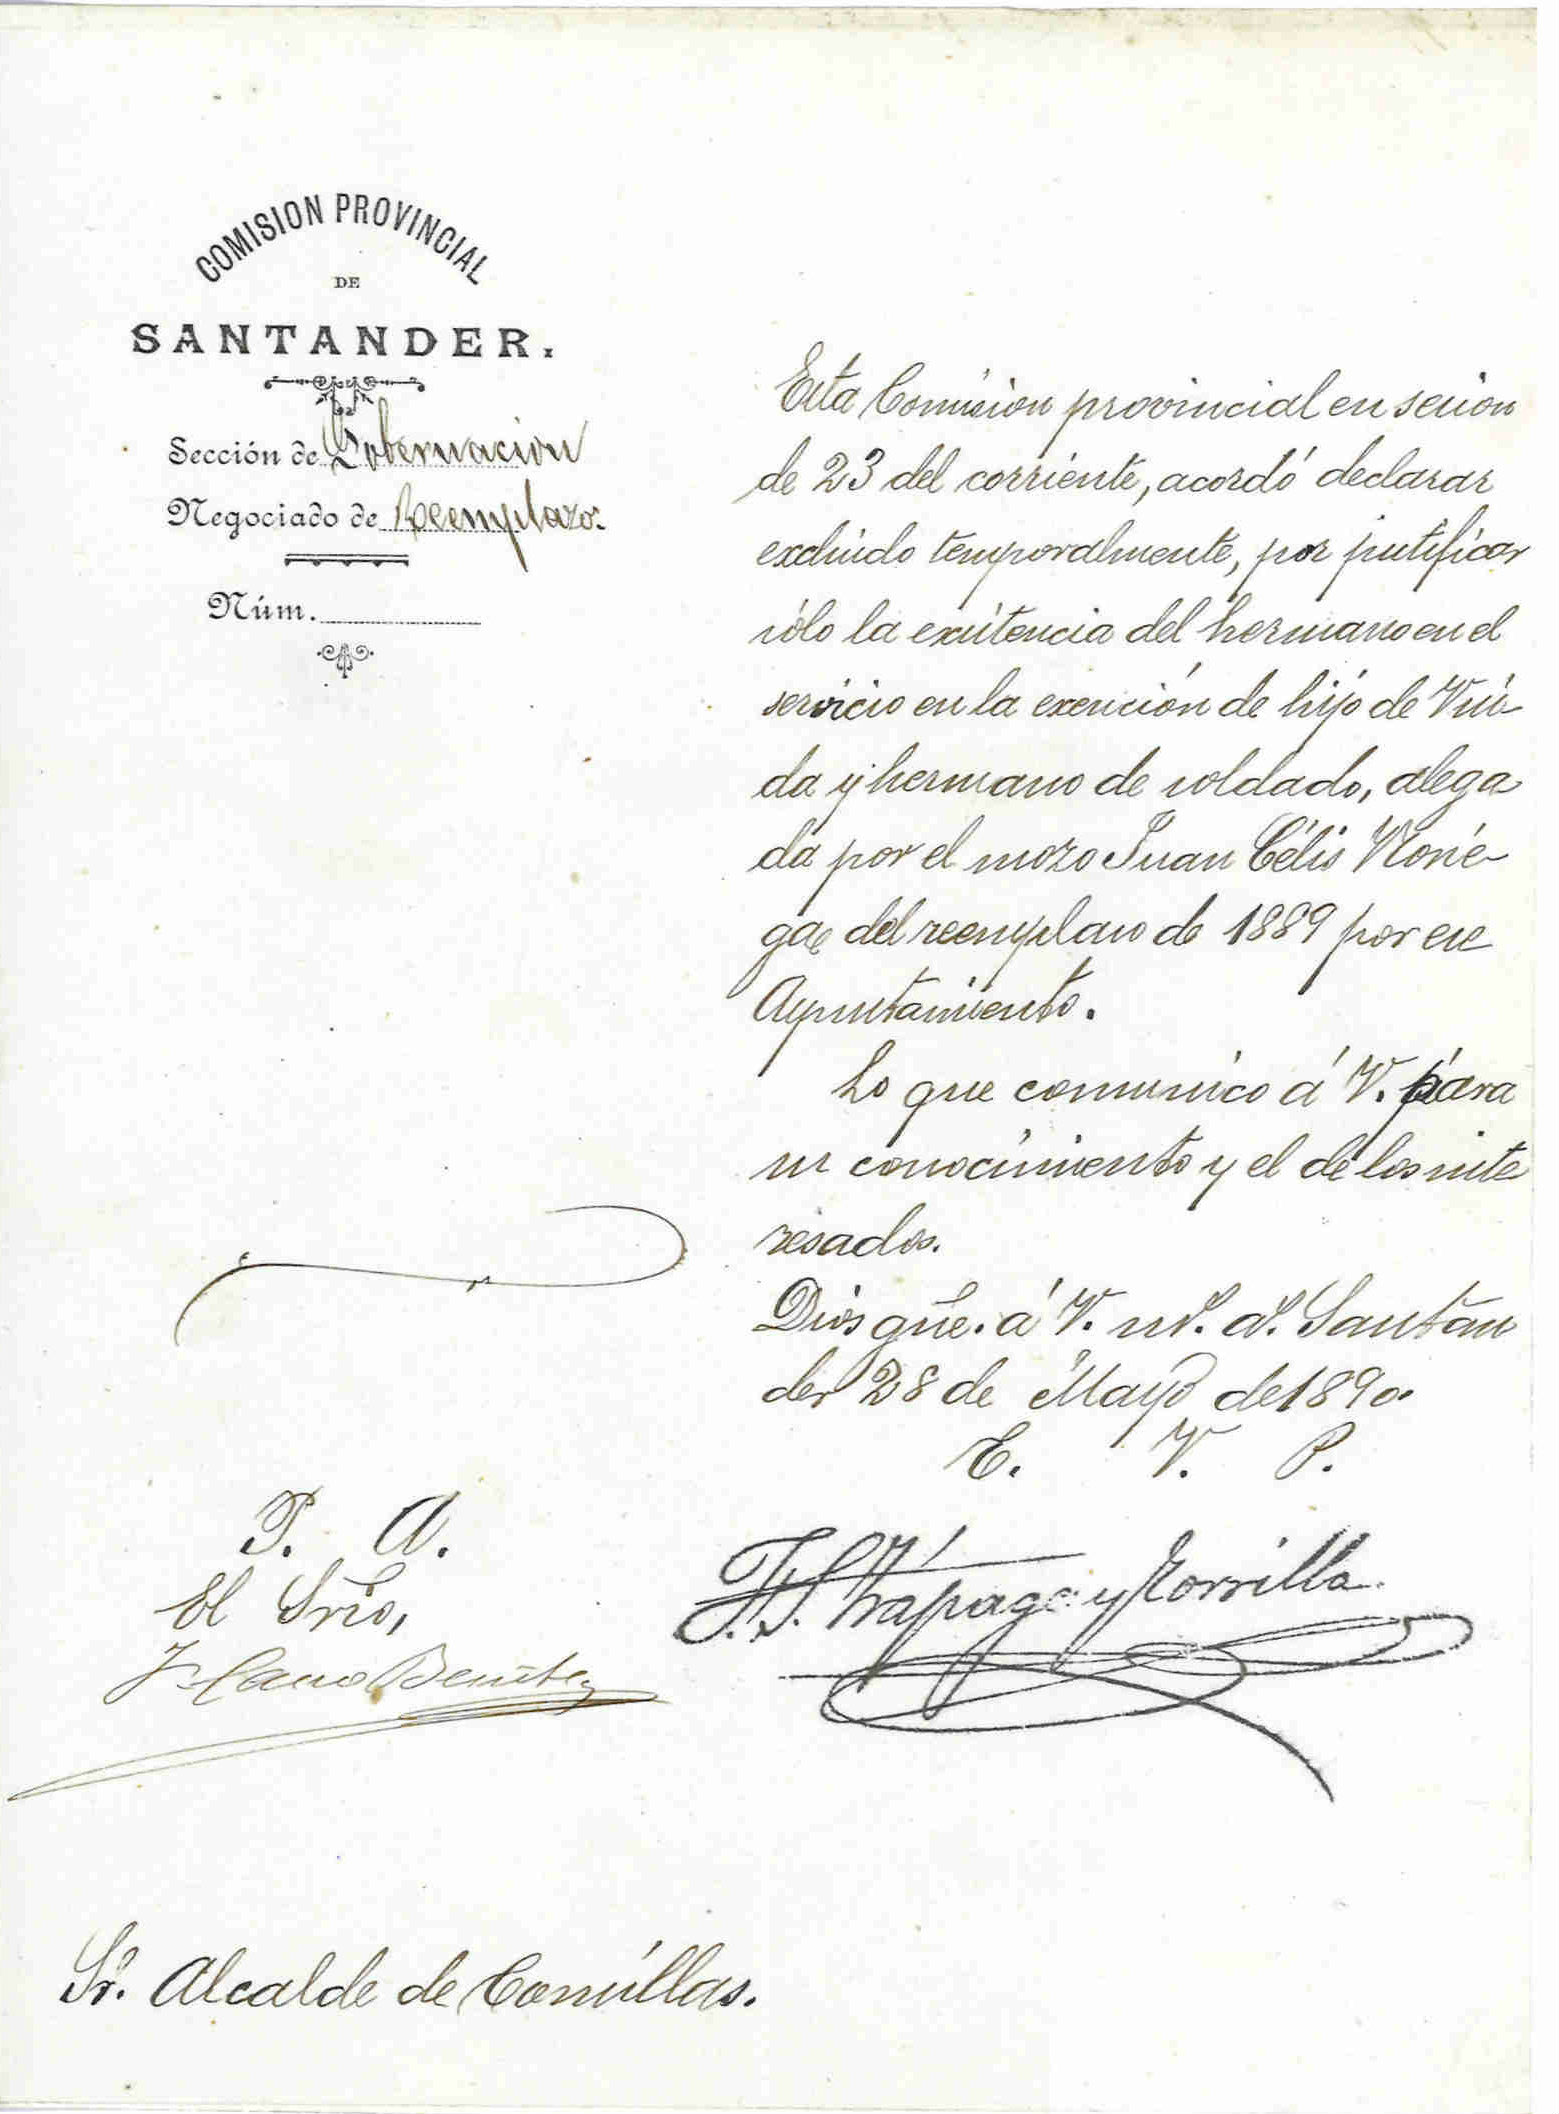 COMISION PROVINCIAL
DE
SANTANDER.
Sección de Gobernacion
Negociado de Reemplazos.
Núm.
Esta Comision provincial en sesion
de 23 del corriente, acordó declarar
excluido temporalmente, por justificar
sólo la existencia del hermano en el
servicio en la exención de hijo de Viu-
da y hermano de soldado, alega
da por el mozo Juan Célis Norie-
ga, del reemplazo de 1889 por ese
Ayuntamiento.
Lo que comunico á V. para
su conocimiento y el de los inte
resados.
Dios gûe. á V. ms. as. Santan
der 28 de Mayo de 1890.
E. V. P.
P. A.
El Srio,
J. Cano Benitez
Trápaga y Zorrilla
Sr. Alcalde de Comillas.